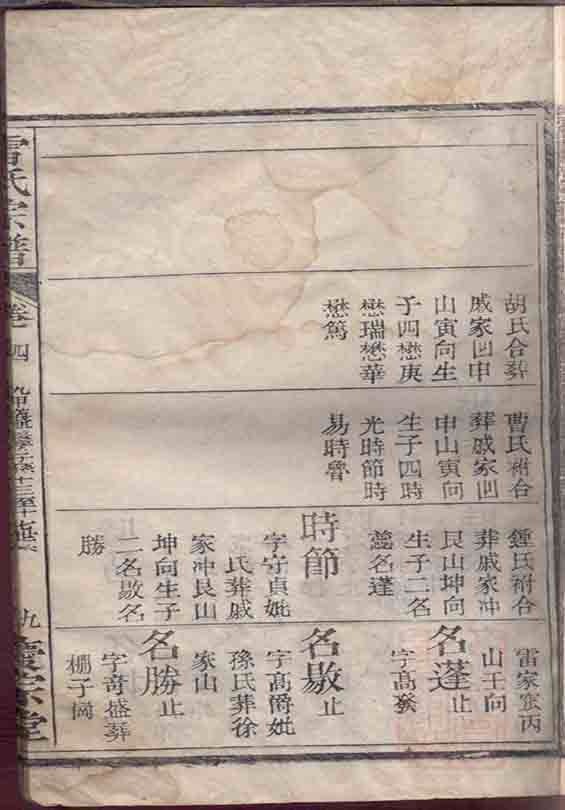 胡氏合葬
戚家凹申
山寅向生
子四懋庚
懋瑞懋華
懋篤
曹氏祔合
葬戚家凹
申山寅向
生子四時
光時節時
易時魯
鍾氏祔合
葬戚家冲
艮山坤向
生子二名
名蓬
時節
字守貞妣
氏葬戚
家冲艮山
坤向生子
二名敭名
勝
雷家 丙
山壬向
名蓬止
字高發
名敭止
字高爵妣
孫氏葬徐
家山
名勝止
字奇盛葬
棚子岡
雷氏宗譜
卷之四
九
慶宗堂